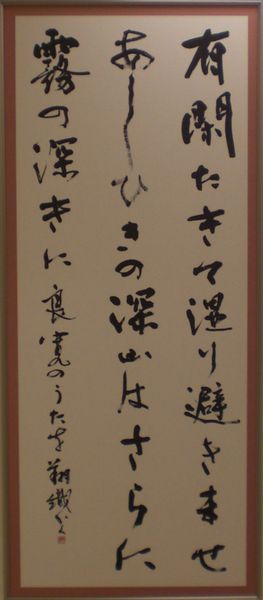 有閑たきて湿り避きませ
あしひきの深山はさらに
霧の深きに 良寛のうたを 翔織かく